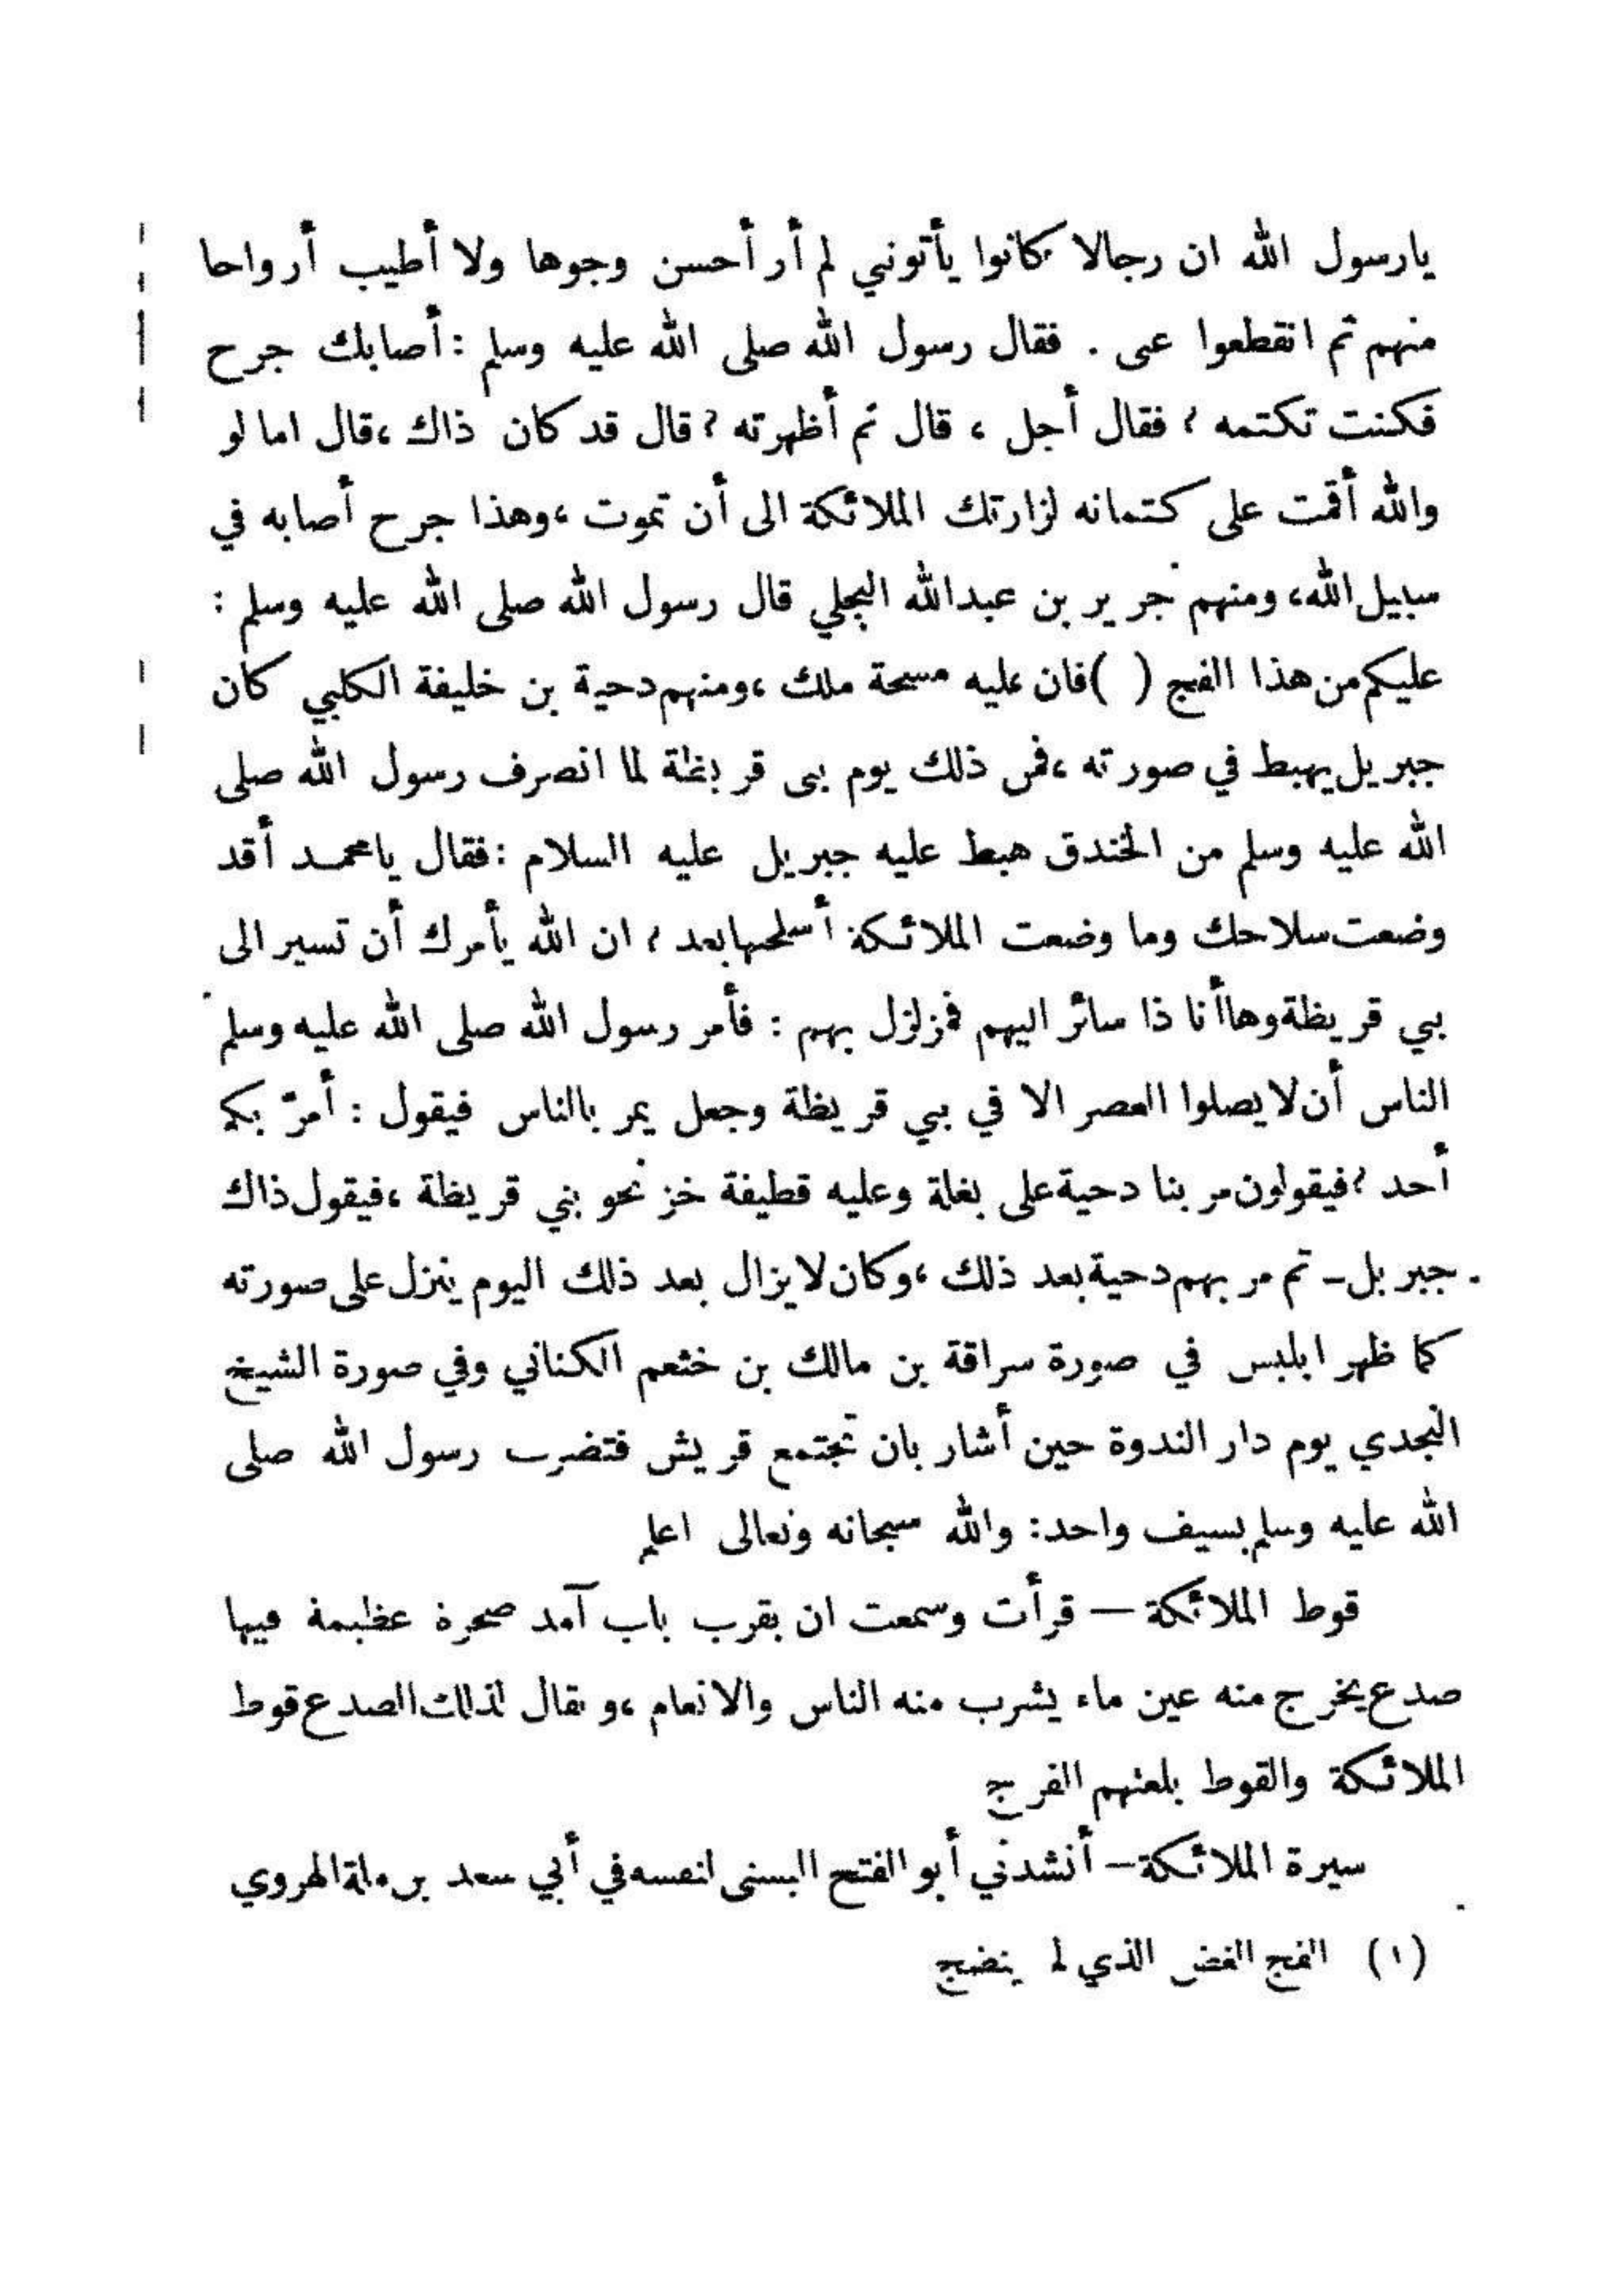 يارسول الله ان رجالا كانوا يأتونني لم أر أحسن وجوها ولا أطيب أرواحا
منهم ثم انقطعوا عني . فقال رسول الله صلى الله عليه وسلم : أصابك جرح
فكنت تكتمه ؟ فقال أجل ، قال ثم أظهرته ؟ قال قد كان ذاك ، قال اما لو
والله أقمت على كتمانه لزارتك الملائكة الى أن تموت ، وهذا جرح أصابه في
سبيل الله، ومنهم جرير بن عبدالله البجلي قال رسول الله صلى الله عليه وسلم :
عليكم من هذا الفج ( ) فان عليه مسحة ملك ، ومنهم دحية بن خليفة الكلبي كان
جبريل يهبط في صورته ، فمن ذلك يوم بني قريظة لما انصرف رسول الله صلى
الله عليه وسلم من الخندق هبط عليه جبريل عليه السلام : فقال يامحمد أقد
وضعت سلاحك وما وضعت الملائكة أسلحتها بعد ؟ ان الله يأمرك أن تسير الى
بني قريظة وهاأنا ذا سائر اليهم فمزلزل بهم : فأمر رسول الله صلى الله عليه وسلم
الناس أن لا يصلوا العصر الا في بني قريظة وجعل يمر بالناس فيقول : أمرّ بكم
أحد ؟ فيقولون مر بنا دحية على بغلة وعليه قطيفة خز نحو بني قريظة ، فيقول ذاك
جبريل - ثم مر بهم دحية بعد ذلك ، وكان لا يزال بعد ذلك اليوم ينزل على صورته
كما ظهر ابليس في صورة سراقة بن مالك بن خثعم الكناني وفي صورة الشيخ
النجدي يوم دار الندوة حين أشار بان تجتمع قريش فتضرب رسول الله صلى
الله عليه وسلم بسيف واحد: والله سبحانه وتعالى اعلم
قوط الملائكة — قرأت وسمعت ان بقرب باب آمد صخرة عظيمة فيها
صدع يخرج منه عين ماء يشرب منه الناس والانعام ، ويقال لذلك الصدع قوط
الملائكة والقوط بلغتهم الفرج
سيرة الملائكة — أنشدني أبو الفتح البستي لنفسه في أبي سعد بن ملة الهروي
(١) الفج الغض الذي لم ينضج